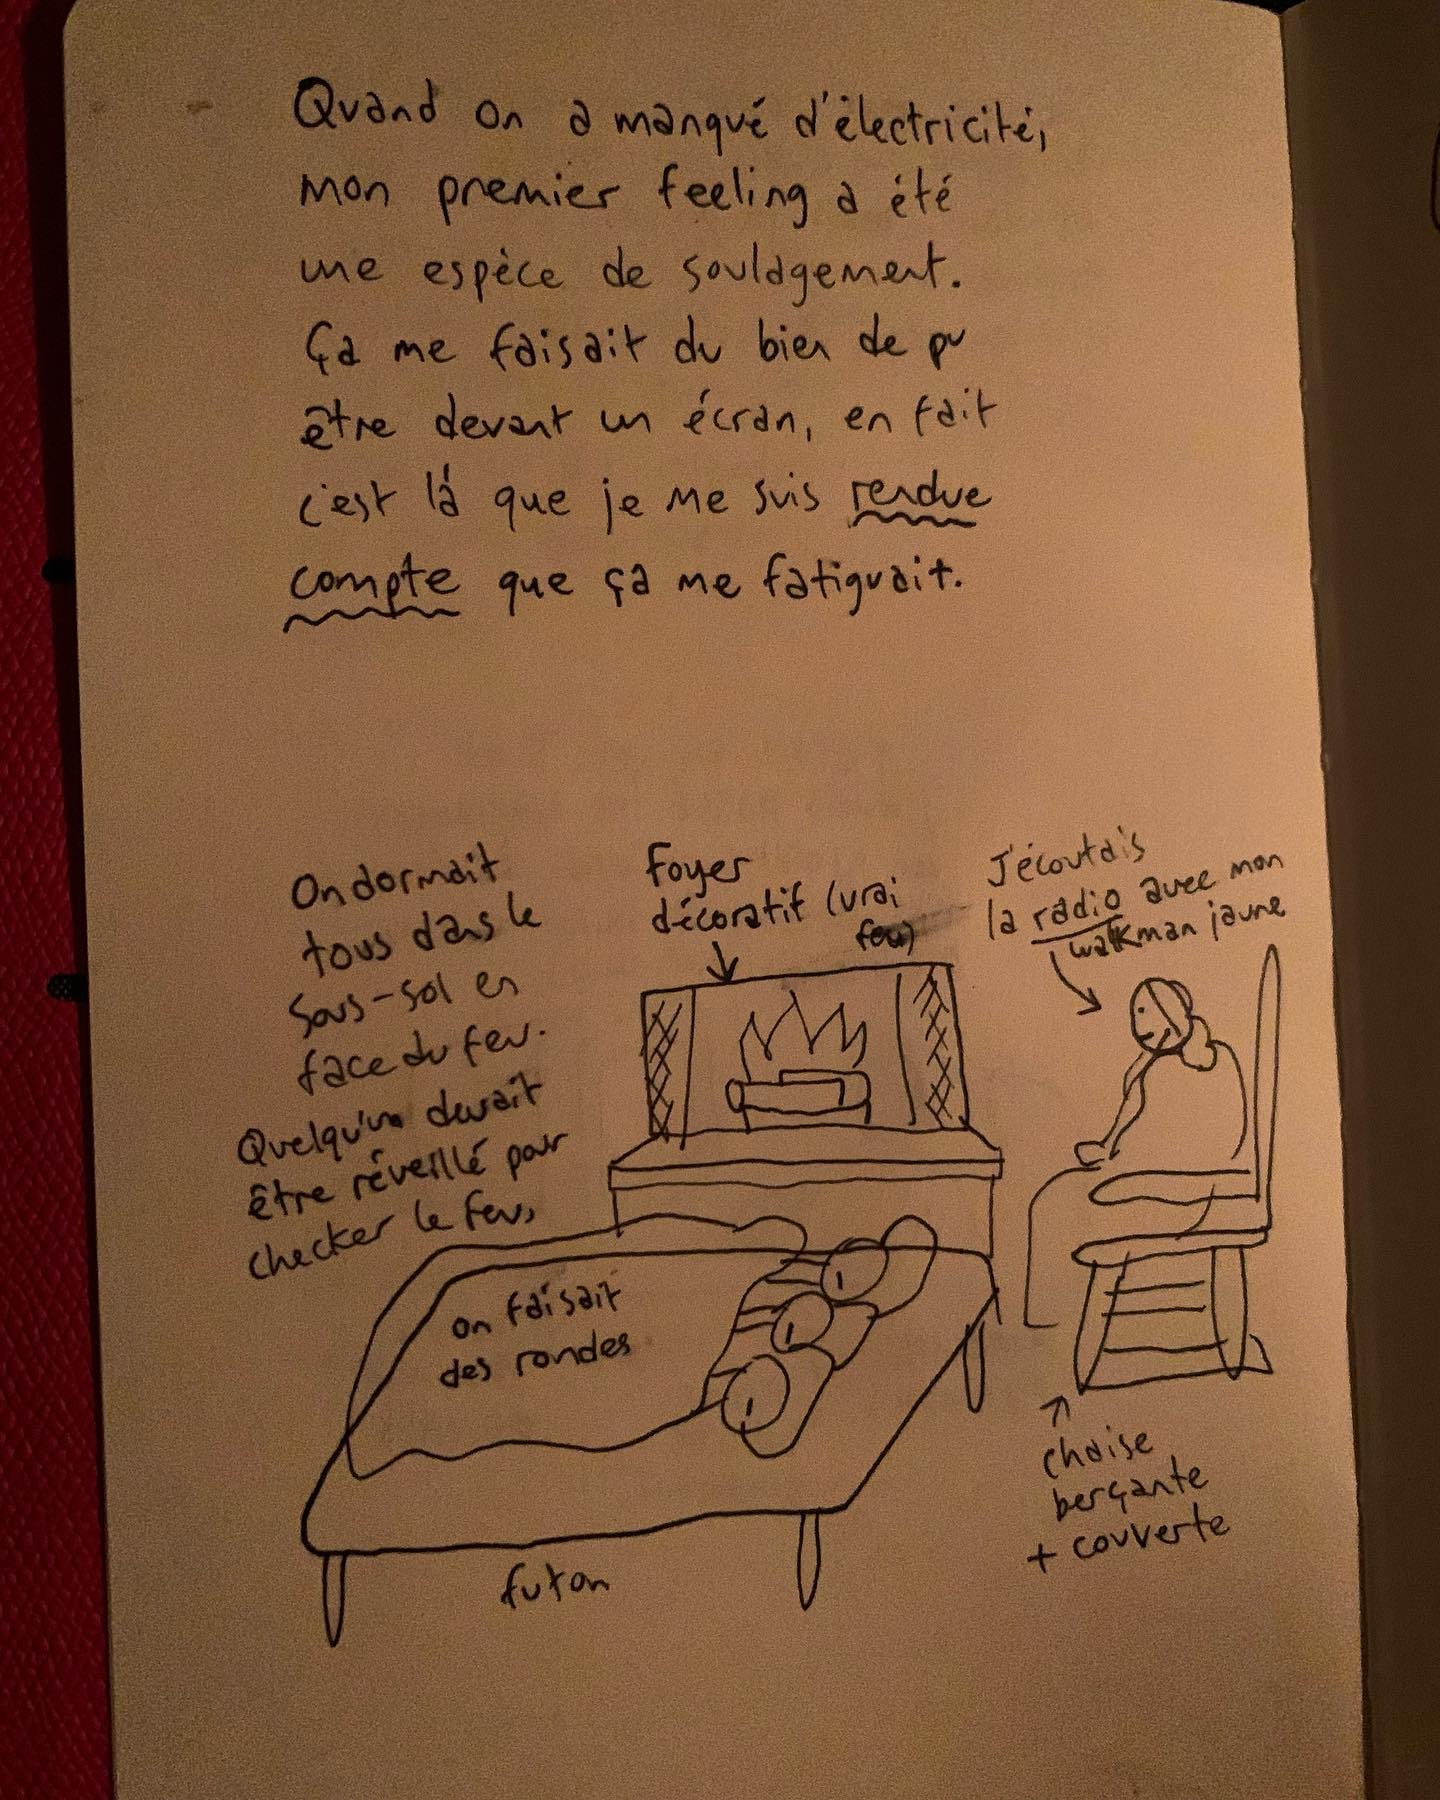 Quand on a manqué d'électricité,
mon premier feeling a été
une espèce de soulagement.
Ça me faisait du bien de pu
être devant un écran, en fait
c'est là que je me suis rendue
compte que ça me fatiguait.
On dormait
tous dans le
sous-sol en
face du feu.
Quelqu'un devait
être réveillé pour
checker le feu,
on faisait
des rondes
Foyer
décoratif (vrai
feu)
J'écoutais
la radio avec mon
walkman jaune
futon
chaise
berçante
+ couverte